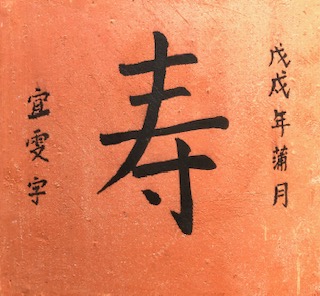 戊戌年蒲月
寿
宜雯字